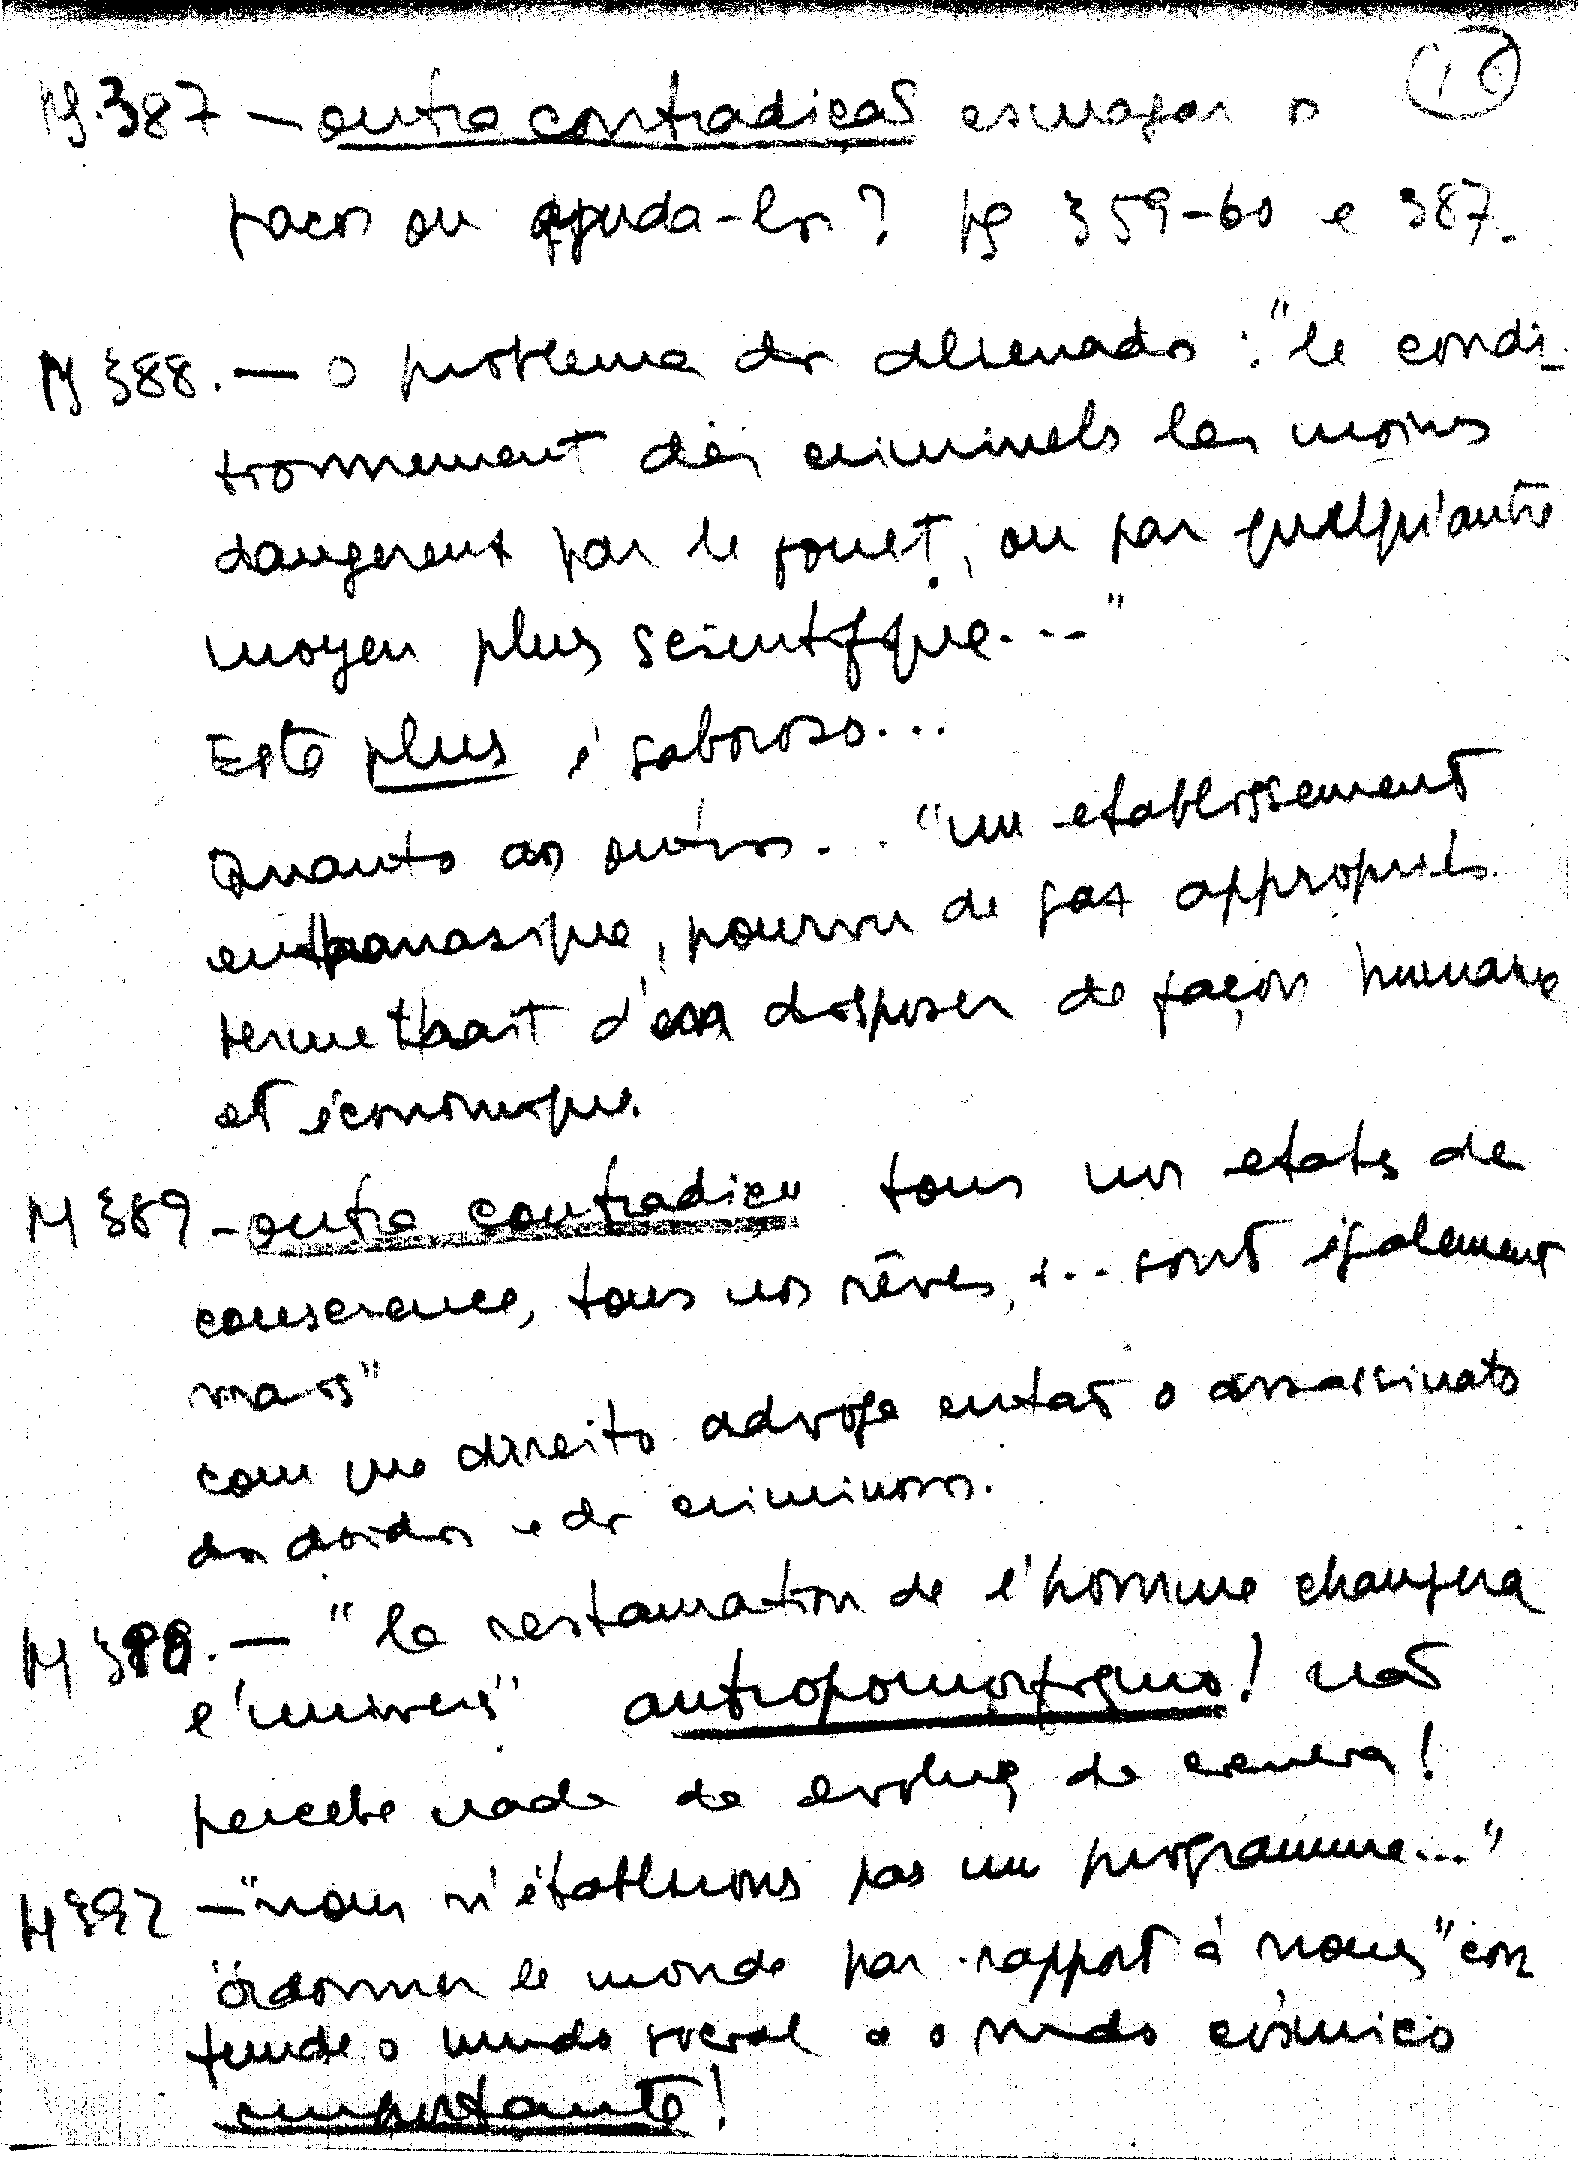 16
Pg. 387 — outra contradição esmagar o
fraco ou ajuda-los? pg 359-60 e 387.
Pg 388. — O problema do alienado : "le condi-
tionnement des criminels les moins
dangereux par le fouet, ou par quelqu'autre
moyen plus scientifique..."
Este plus é saboroso...
Quanto aos outros... "un etablissement
euthanasique, pourvu de gas appropriés
permettrait d'en disposer de façon humaine
et économique.
Pg 389 - outra contradição tous nos etats de
conscience, tous nos rêves, e... sont également
vrais"
com que direito advoga então o assassinato
dos doidos e dos criminosos.
Pg 390. — "la restauration de l'homme changera
l'univers" antropomorfismo! não
percebe nada de evolução de ciencia!
Pg 392 — "nous n'établirons pas un programme..."
"ordonner le monde par rapport à nous" con
funde o mundo social e o mundo cósmico
importante!